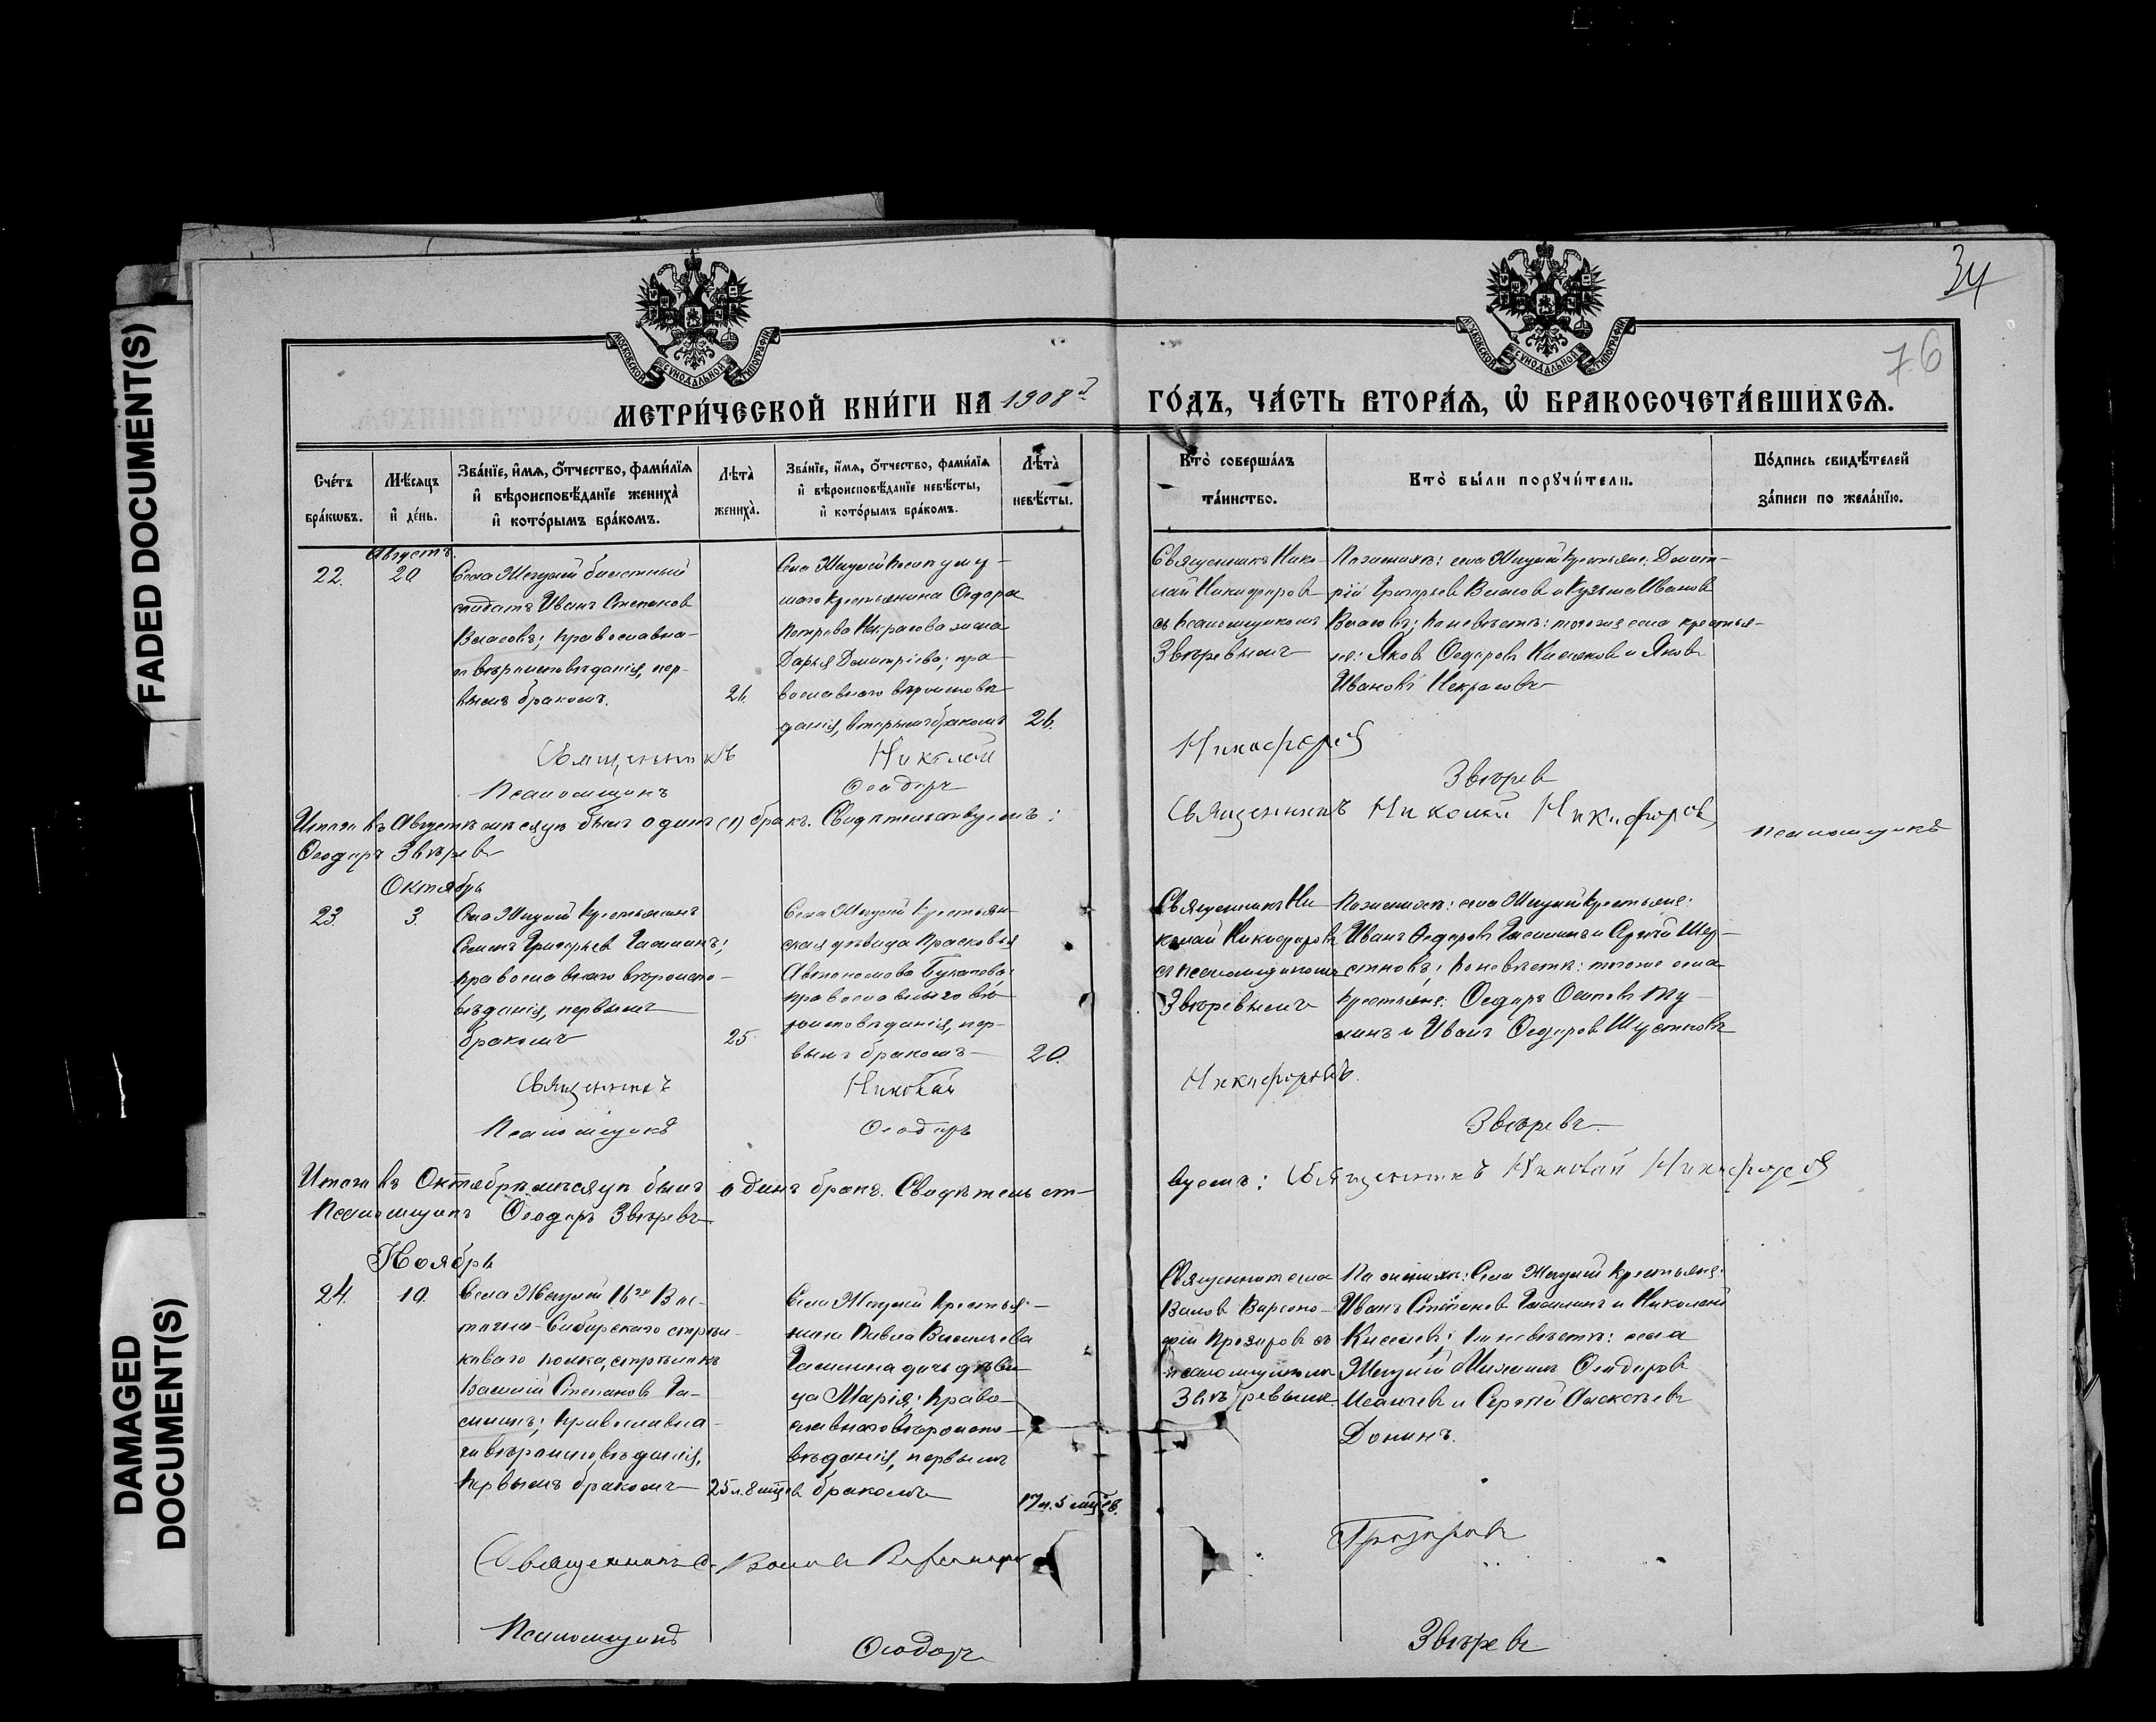 FADED DOCUMENT(S)
DAMAGED
DOCUMENT(S)
34
76
МОСКОВСКОЙ СУНОДАЛЬНОЙ ТИПОГРАФІИ
МОСКОВСКОЙ СУНОДАЛЬНОЙ ТИПОГРАФІИ
МЕТРИ́ЧЕСКОЙ КНИ́ГИ НА 1908 г.
ГО́ДЪ, ЧА́СТЬ ВТОРА́Ѧ, Ѡ҆ БРАКОСОЧЕТА́ВШИХСѦ.
Сче́тъ бра́кѡвъ.
Мѣ́сѧцъ и҆ де́нь.
Зва́нїе, и҆́мѧ, ѻ҆́тчество, фами́лїѧ и҆ вѣроисповѣ́данїе жениха̀ и҆ кото́рымъ бра́комъ.
Лѣ́та̀ жениха̀.
Зва́нїе, и҆́мѧ, ѻ҆́тчество, фами́лїѧ и҆ вѣроисповѣ́данїе невѣ́сты, и҆ кото́рымъ бра́комъ.
Лѣ́та̀ невѣ́сты.
Кто̀ соверша́лъ та́инство.
Кто̀ бы́ли порꙋчи́тели.
По́дпись свидѣ́телей за́писи по жела́нїю.
Августъ.
22.
20
Села Жегулей билетный
солдатъ Иванъ Степанов
Власовъ; православна-
го вѣроисповѣданія, пер-
вымъ бракомъ.
26.
Села Жегулей послѣ умер-
шаго крестьянина Ѳедора
Петрова Некрасова жена
Дарья Дмитріева; пра-
вославнаго вѣроисповѣ-
данія, вторымъ бракомъ
26.
Священникъ Нико-
лай Никифоровъ
съ псаломщикомъ
Звѣревымъ
По женихѣ: села Жегулей крестьяне: Дмит-
рій Григорьевъ Власовъ и Кузьма Ивановъ
Власовъ; по невѣстѣ: того же села крестья-
не: Яковъ Ѳедоровъ и Яковъ
Ивановъ Некрасовъ
Священникъ Николай Никифоровъ
Псаломщикъ Ѳеодоръ Звѣревъ
Итого въ Августѣ мѣсяцѣ былъ одинъ (1) бракъ. Свидѣтельствуемъ: Священникъ Николай Никифоровъ Псаломщикъ
Ѳеодоръ Звѣревъ
Октябрь
23.
3.
Села Жегулей крестьянинъ
Семенъ Григорьевъ Галкинъ;
православнаго вѣроиспо-
вѣданія, первымъ
бракомъ
25.
Села Жегулей крестьян-
ская дѣвица Прасковья
Автономова
православнаго вѣ-
роисповѣданія, пер-
вымъ бракомъ
20.
Священникъ Ни-
колай Никифоровъ
съ псаломщикомъ
Звѣревымъ
По женихѣ: села Жегулей крестьяне:
Иванъ Ѳедоровъ и Сергѣй Шу-
стовъ; по невѣстѣ: того же села
крестьяне: Ѳедоръ Осиповъ
и Иванъ Ѳедоровъ
Священникъ Николай Никифоровъ.
Псаломщикъ Ѳеодоръ Звѣревъ.
Итого въ Октябрѣ мѣсяцѣ былъ одинъ бракъ. Свидѣтельст-вуемъ: Священникъ Николай Никифоровъ
Псаломщикъ Ѳеодоръ Звѣревъ
Ноябрь
24.
10.
Села Жегулей 16го Вос-
точно-Сибирскаго стрѣл-
коваго полка, стрѣлокъ
Василій Степановъ
православна-
го вѣроисповѣданія,
первымъ бракомъ
25 л. 8 мцев
Села Жегулей крестья-
нина Павла Васильева
дочь дѣви-
ца Марія; право-
славнаго вѣроиспо-
вѣданія, первымъ
бракомъ
17 л. 5 мцев.
Священник села
съ
псаломщикомъ
Звѣревымъ.
По женихѣ: Села Жегулей крестьяне:
Иванъ Степановъ и Николай
Киселевъ; по невѣстѣ: села
Жегулей Ѳеодоровъ
и Сергѣй Алексѣевъ
Донинъ.
Священникъ с.
Псаломщикъ Ѳеодоръ Звѣревъ